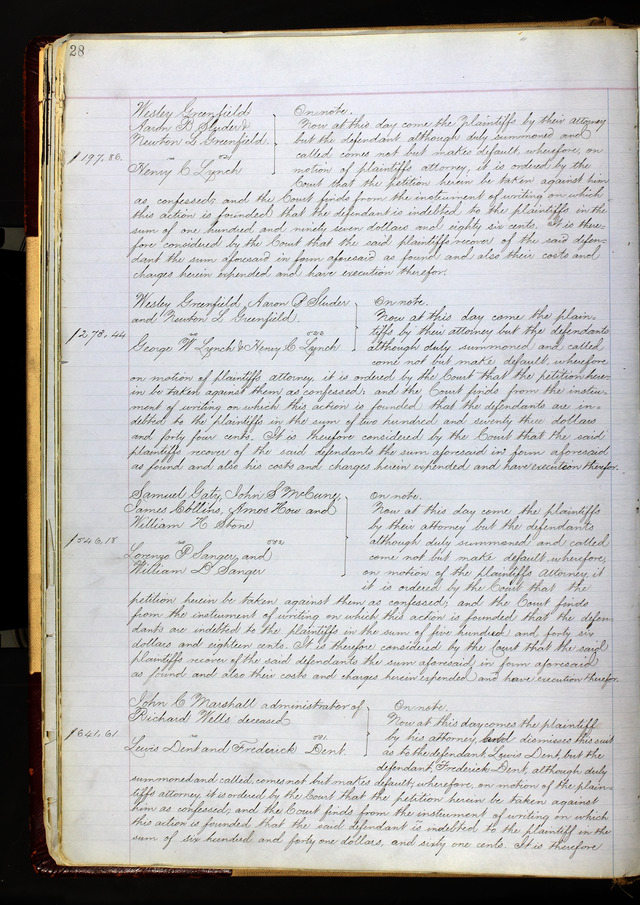 28
Wesley Greenfield
Aaron P Sluder &
Newton L Greenfield
vs
Henry C Lynch
$197.86.
On note.
Now at this day come the plaintiffs by their attorney
but the defendant although duly summoned and
called comes not but makes default, wherefore, on
motion of plaintiffs attorney, it is ordered by the
Court that the petition herein be taken against him
as confessed; and the Court finds from the instrument of writing on which
this action is founded that the defendant is indebted to the plaintiffs in the
sum of one hundred and ninety seven dollars and eighty six cents. It is there-
fore considered by the Court that the said plaintiffs recover of the said defen-
dant the sum aforesaid in form aforesaid as found and also their costs and
charges herein expended and have execution therefor.
Wesley Greenfield, Aaron P Sluder
and Newton L Greenfield
vs
George W Lynch & Henry C Lynch
$273.44
On note.
Now at this day come the plain-
tiffs by their attorney but the defendants
although duly summoned and called
come not but make default, wherefore
on motion of plaintiffs attorney, it is ordered by the Court that the petition here-
in be taken against them as confessed: and the Court finds from the instru-
ment of writing on which this action is founded that the defendants are in-
debted to the plaintiffs in the sum of two hundred and seventy three dollars
and forty four cents. It is therefore considered by the Court that the said
plaintiffs recover of the said defendants the sum aforesaid in form aforesaid
as found and also his costs and charges herein expended and have execution therefor.
Samuel Gaty, John S McCune,
James Collins, Amos How and
William H Stone
vs
Lorenzo P Sanger, and
William D Sanger
$546.18
On note.
Now at this day come the plaintiffs
by their attorney but the defendants
although duly summoned and called
come not but make default, wherefore,
on motion of the plaintiffs attorney it
it is ordered by the Court that the
petition herein be taken against them as confessed; and the Court finds
from the instrument of writing on which this action is founded that the defen-
dants are indebted to the plaintiffs in the sum of five hundred and forty six
dollars and eighteen cents. It is therefore considered by the Court that the said
plaintiffs recover of the said defendants the sum aforesaid in form aforesaid
as found and also their costs and charges herein expended and have execution therefor.
John C Marshall administrator of
Richard Wells deceased
vs
Lewis Dent and Frederick Dent.
$641.61
On note.
Now at this day comes the plaintiff
by his attorney, and dismisses this suit
as to the defendant Lewis Dent, but the
defendant, Frederick Dent, although duly
summoned and called, comes not but makes default, wherefore, on motion of the plain-
tiffs attorney it is ordered by the Court that the petition herein be taken against
him as confessed, and the Court finds from the instrument of writing on which
this action is founded that the said defendant is indebted to the plaintiff in the
sum of six hundred and forty one dollars, and sixty one cents. It is therefore